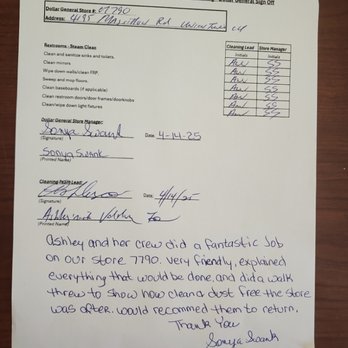 Dollar General Sign Off
Dollar General Store #: 07790
Address: 4195 Massillon Rd Uniontown OH
Cleaning Lead Store Manager
Restrooms - Steam Clean Initials Initials
Clean and sanitize sinks and toilets. AW SS
Clean mirrors AW SS
Wipe down walls/clean FRP. AW SS
Sweep and mop floors. AW SS
Clean baseboards (if applicable) AW SS
Clean restroom doors/door frames/doorknobs AW SS
Clean/wipe down light fixtures AW SS
Dollar General Store Manager:
Sonya Swank Date: 4-14-25
(Signature)
Sonya Swank
(Printed Name)
Cleaning Team Lead:
Date: 4/14/25
(Signature)
(Printed Name)
Ashley and her crew did a fantastic Job
on our store 7790. Very friendly, explained
everything that would be done, and did a walk
threw to show how clean & dust free the store
was after. would recommed them to return.
Thank You
Sonya Swank